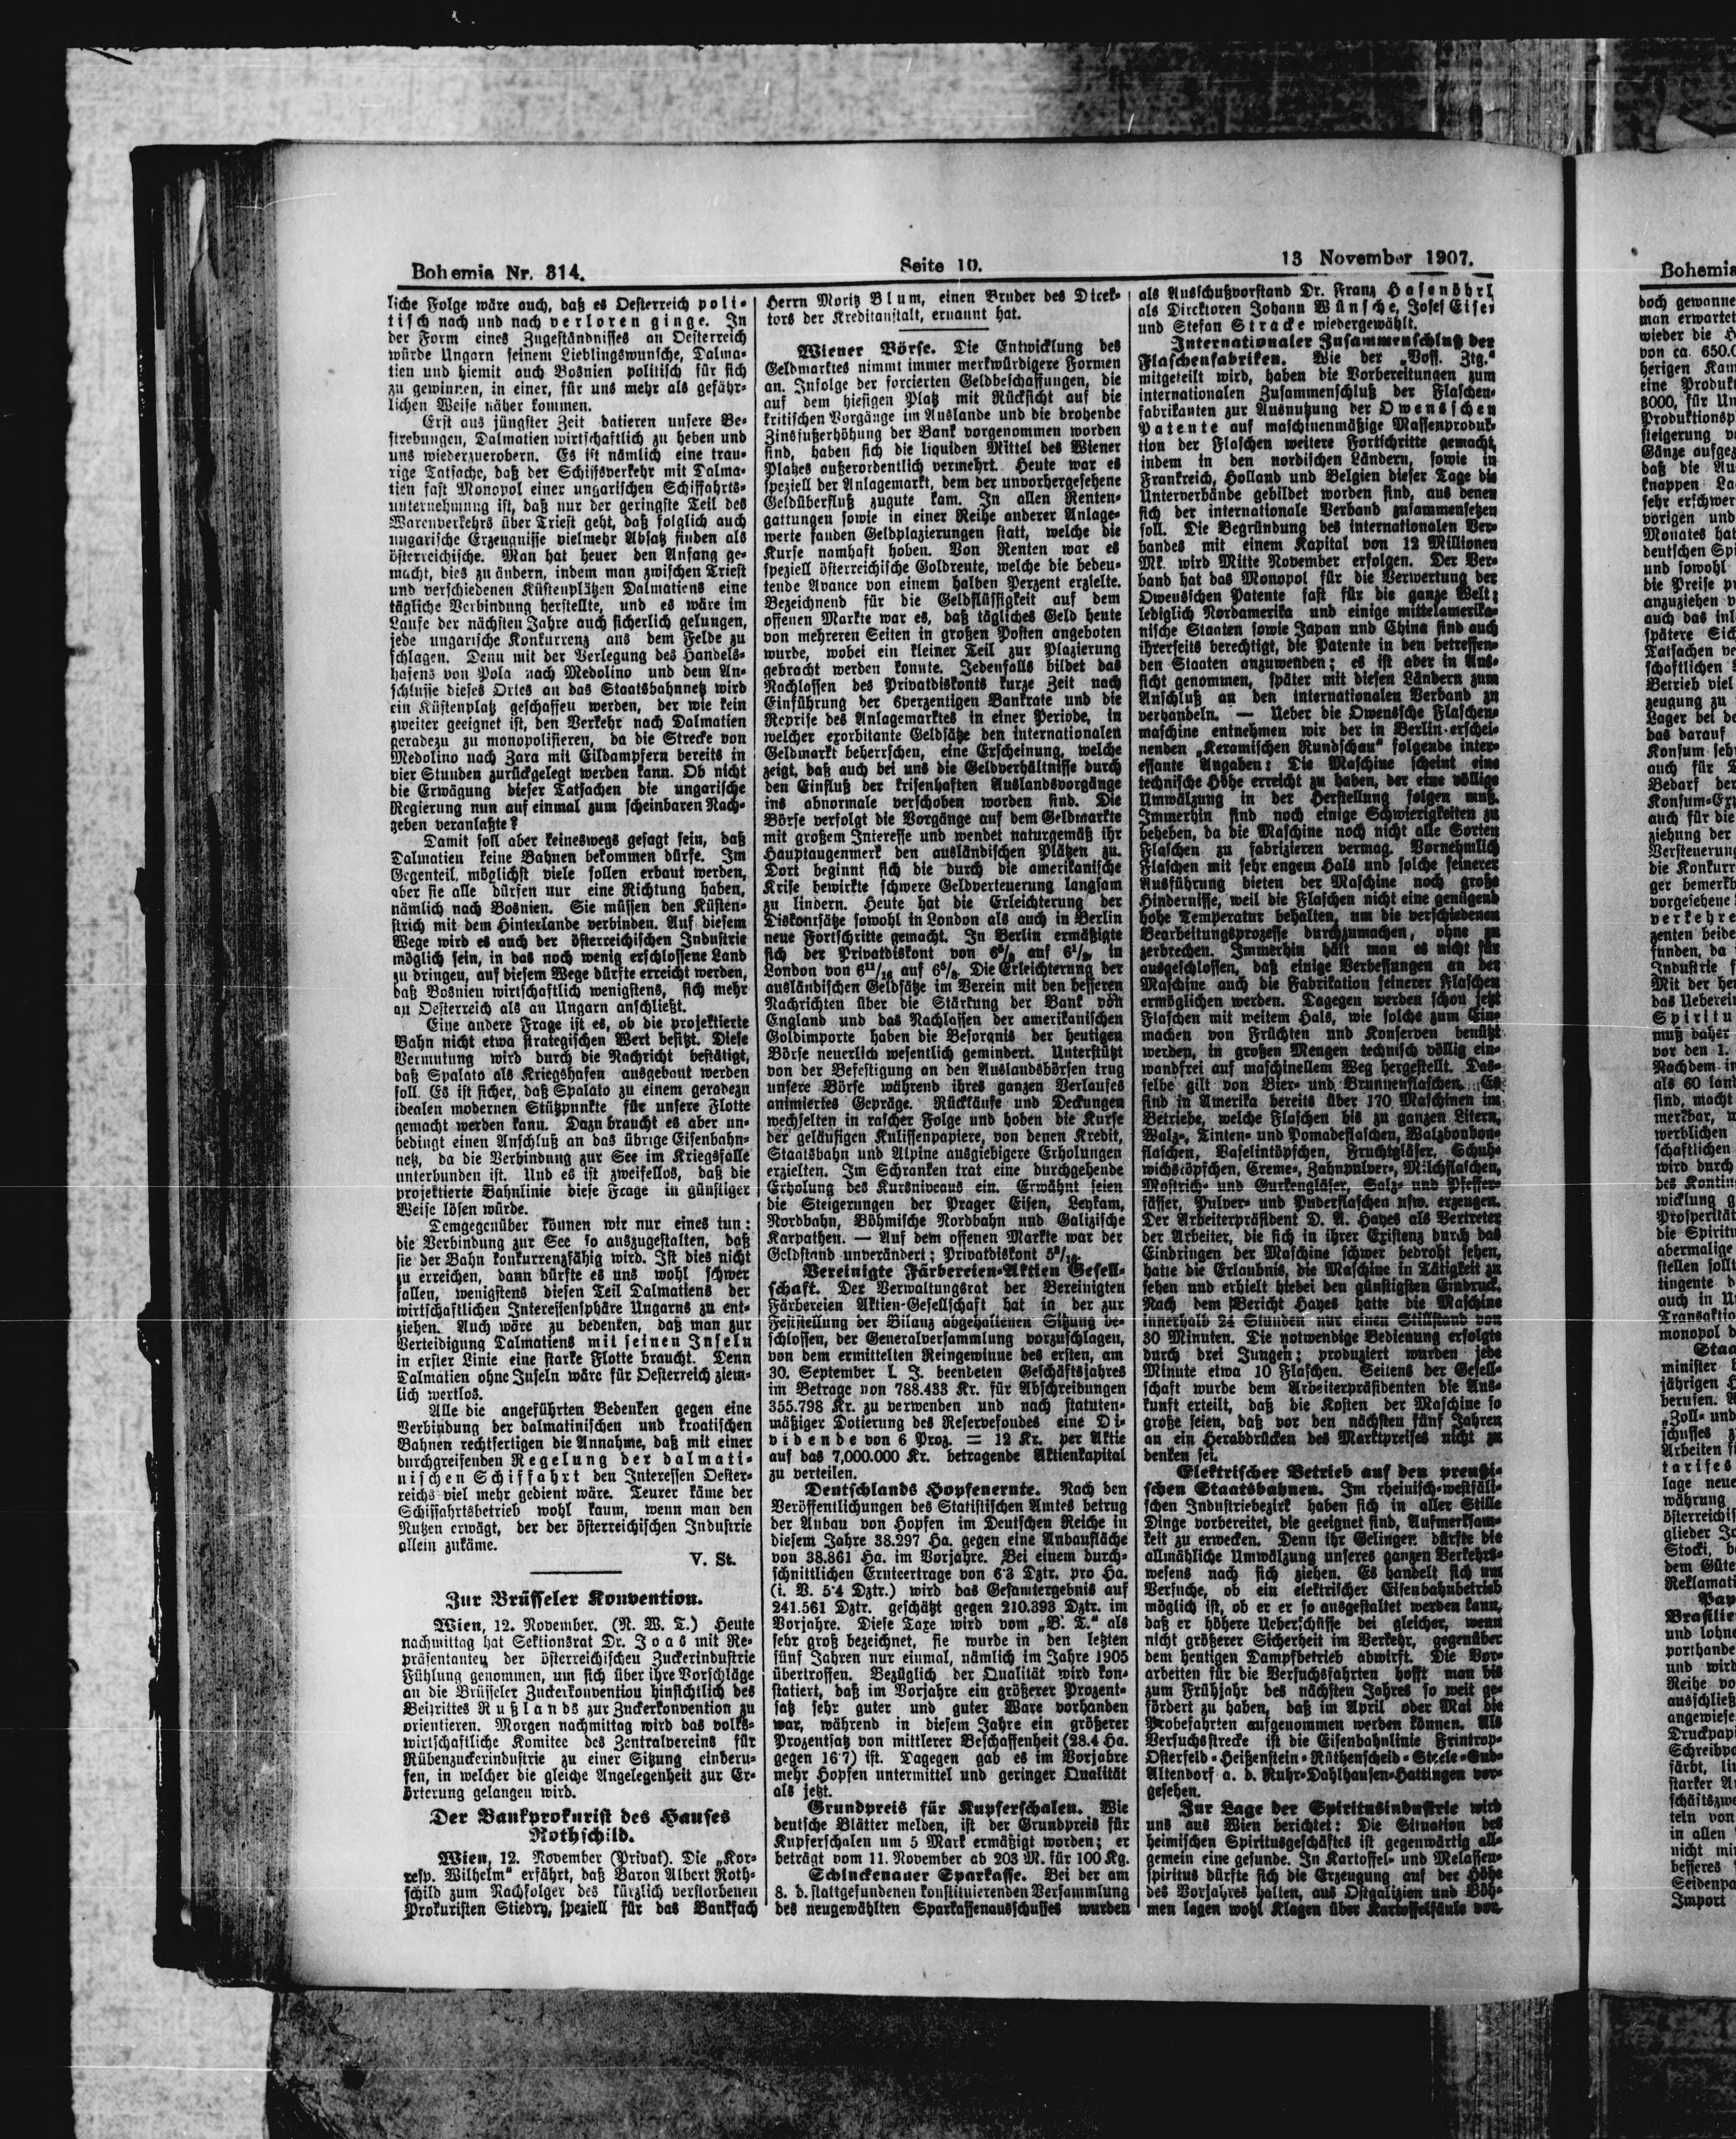 Bohemia Nr. 314.
Seite 10.
13 November 1907.
liche Folge wäre auch, daß es Oesterreich poli-
tisch nach und nach verloren ginge. In
der Form eines Zugeständnisses an Oesterreich
würde Ungarn seinem Lieblingswunsche, Dalma-
tien und hiemit auch Bosnien politisch für sich
zu gewinnen, in einer, für uns mehr als gefähr-
lichen Weise näher kommen.
Erst aus jüngster Zeit datieren unsere Be-
strebungen, Dalmatien wirtschaftlich zu heben und
uns wiederzuerobern. Es ist nämlich eine trau-
rige Tatsache, daß der Schiffsverkehr mit Dalma-
tien fast Monopol einer ungarischen Schiffahrts-
unternehmung ist, daß nur der geringste Teil des
Warenverkehrs über Triest geht, daß folglich auch
ungarische Erzeugnisse vielmehr Absatz finden als
österreichische. Man hat heuer den Anfang ge-
macht, dies zu ändern, indem man zwischen Triest
und verschiedenen Küstenplätzen Dalmatiens eine
tägliche Verbindung herstellte, und es wäre im
Laufe der nächsten Jahre auch sicherlich gelungen,
jede ungarische Konkurrenz aus dem Felde zu
schlagen. Denn mit der Verlegung des Handels-
hafens von Pola nach Medolino und dem An-
schlusse dieses Ortes an das Staatsbahnnetz wird
ein Küstenplatz geschaffen werden, der wie kein
zweiter geeignet ist, den Verkehr nach Dalmatien
geradezu zu monopolisieren, da die Strecke von
Medolino nach Zara mit Eildampfern bereits in
vier Stunden zurückgelegt werden kann. Ob nicht
die Erwägung dieser Tatsachen die ungarische
Regierung nun auf einmal zum scheinbaren Nach-
geben veranlaßte?
Damit soll aber keineswegs gesagt sein, daß
Dalmatien keine Bahnen bekommen dürfe. Im
Gegenteil, möglichst viele sollen erbaut werden,
aber sie alle dürfen nur eine Richtung haben,
nämlich nach Bosnien. Sie müssen den Küsten-
strich mit dem Hinterlande verbinden. Auf diesem
Wege wird es auch der österreichischen Industrie
möglich sein, in das noch wenig erschlossene Land
zu dringen, auf diesem Wege dürfte erreicht werden,
daß Bosnien wirtschaftlich wenigstens, sich mehr
an Oesterreich als an Ungarn anschließt.
Eine andere Frage ist es, ob die projektierte
Bahn nicht etwa strategischen Wert besitzt. Diese
Vermutung wird durch die Nachricht bestätigt,
daß Spalato als Kriegshafen ausgebaut werden
soll. Es ist sicher, daß Spalato zu einem geradezu
idealen modernen Stützpunkte für unsere Flotte
gemacht werden kann. Dazu braucht es aber un-
bedingt einen Anschluß an das übrige Eisenbahn-
netz, da die Verbindung zur See im Kriegsfalle
unterbunden ist. Und es ist zweifellos, daß die
projektierte Bahnlinie diese Frage in günstiger
Weise lösen würde.
Demgegenüber können wir nur eines tun:
die Verbindung zur See so auszugestalten, daß
sie der Bahn konkurrenzfähig wird. Ist dies nicht
zu erreichen, dann dürfte es uns wohl schwer
fallen, wenigstens diesen Teil Dalmatiens der
wirtschaftlichen Interessensphäre Ungarns zu ent-
ziehen. Auch wäre zu bedenken, daß man zur
Verteidigung Dalmatiens mit seinen Inseln
in erster Linie eine starke Flotte braucht. Denn
Dalmatien ohne Inseln wäre für Oesterreich ziem-
lich wertlos.
Alle die angeführten Bedenken gegen eine
Verbindung der dalmatinischen und kroatischen
Bahnen rechtfertigen die Annahme, daß mit einer
durchgreifenden Regelung der dalmati-
nischen Schiffahrt den Interessen Oester-
reichs viel mehr gedient wäre. Teurer käme der
Schiffahrtsbetrieb wohl kaum, wenn man den
Nutzen erwägt, der der österreichischen Industrie
allein zukäme.
V. St.
Zur Brüsseler Konvention.
Wien, 12. November. (N. W. T.) Heute
nachmittag hat Sektionsrat Dr. Joas mit Re-
präsentanten der österreichischen Zuckerindustrie
Fühlung genommen, um sich über ihre Vorschläge
an die Brüsseler Zuckerkonvention hinsichtlich des
Beitrittes Rußlands zur Zuckerkonvention zu
orientieren. Morgen nachmittag wird das volks-
wirtschaftliche Komitee des Zentralvereins für
Rübenzuckerindustrie zu einer Sitzung einberu-
fen, in welcher die gleiche Angelegenheit zur Er-
örterung gelangen wird.
Der Bankprokurist des Hauses
Rothschild.
Wien, 12. November (Privat). Die „Kor-
resp. Wilhelm“ erfährt, daß Baron Albert Roth-
schild zum Nachfolger des kürzlich verstorbenen
Prokuristen Stiedry, speziell für das Bankfach
Herrn Moritz Blum, einen Bruder des Direk-
tors der Kreditanstalt, ernannt hat.
Wiener Börse. Die Entwicklung des
Geldmarktes nimmt immer merkwürdigere Formen
an. Infolge der forcierten Geldbeschaffungen, die
auf dem hiesigen Platz mit Rücksicht auf die
kritischen Vorgänge im Auslande und die drohende
Zinsfußerhöhung der Bank vorgenommen worden
sind, haben sich die liquiden Mittel des Wiener
Platzes außerordentlich vermehrt. Heute war es
speziell der Anlagemarkt, dem der unvorhergesehene
Geldüberfluß zugute kam. In allen Renten-
gattungen sowie in einer Reihe anderer Anlage-
werte fanden Geldplazierungen statt, welche die
Kurse namhaft hoben. Von Renten war es
speziell österreichische Goldrente, welche die bedeu-
tende Avance von einem halben Perzent erzielte.
Bezeichnend für die Geldflüssigkeit auf dem
offenen Markte war es, daß tägliches Geld heute
von mehreren Seiten in großen Posten angeboten
wurde, wobei ein kleiner Teil zur Plazierung
gebracht werden konnte. Jedenfalls bildet das
Nachlassen des Privatdiskonts kurze Zeit nach
Einführung der 6perzentigen Bankrate und die
Reprise des Anlagemarktes in einer Periode, in
welcher exorbitante Geldsätze den internationalen
Geldmarkt beherrschen, eine Erscheinung, welche
zeigt, daß auch bei uns die Geldverhältnisse durch
den Einfluß der krisenhaften Auslandsvorgänge
ins abnormale verschoben worden sind. Die
Börse verfolgt die Vorgänge auf dem Geldmarkte
mit großem Interesse und wendet naturgemäß ihr
Hauptaugenmerk den ausländischen Plätzen zu.
Dort beginnt sich die durch die amerikanische
Krise bewirkte schwere Geldverteuerung langsam
zu lindern. Heute hat die Erleichterung der
Diskontsätze sowohl in London als auch in Berlin
neue Fortschritte gemacht. In Berlin ermäßigte
sich der Privatdiskont von auf in
London von 6¹¹/₁₆ auf 6⁵/₈. Die Erleichterung der
ausländischen Geldsätze im Verein mit den besseren
Nachrichten über die Stärkung der Bank von
England und das Nachlassen der amerikanischen
Goldimporte haben die Besorgnis der heutigen
Börse neuerlich wesentlich gemindert. Unterstützt
von der Befestigung an den Auslandsbörsen trug
unsere Börse während ihres ganzen Verlaufes
animiertes Gepräge. Rückkäufe und Deckungen
wechselten in rascher Folge und hoben die Kurse
der geläufigen Kulissenpapiere, von denen Kredit,
Staatsbahn und Alpine ausgiebigere Erholungen
erzielten. Im Schranken trat eine durchgehende
Erholung des Kursniveaus ein. Erwähnt seien
die Steigerungen der Prager Eisen, Leykam,
Nordbahn, Böhmische Nordbahn und Galizische
Karpathen. — Auf dem offenen Markte war der
Geldstand unverändert; Privatdiskont
Vereinigte Färbereien-Aktien Gesell-
schaft. Der Verwaltungsrat der Vereinigten
Färbereien Aktien-Gesellschaft hat in der zur
Feststellung der Bilanz abgehaltenen Sitzung be-
schlossen, der Generalversammlung vorzuschlagen,
von dem ermittelten Reingewinne des ersten, am
30. September l. J. beendeten Geschäftsjahres
im Betrage von 788.433 Kr. für Abschreibungen
355.798 Kr. zu verwenden und nach statuten-
mäßiger Dotierung des Reservefondes eine Di-
vidende von 6 Proz. = 12 Kr. per Aktie
auf das 7,000.000 Kr. betragende Aktienkapital
zu verteilen.
Deutschlands Hopfenernte. Nach den
Veröffentlichungen des Statistischen Amtes betrug
der Anbau von Hopfen im Deutschen Reiche in
diesem Jahre 38.297 Ha. gegen eine Anbaufläche
von 38.861 Ha. im Vorjahre. Bei einem durch-
schnittlichen Ernteertrage von 6·3 Dztr. pro Ha.
(i. V. 5·4 Dztr.) wird das Gesamtergebnis auf
241.561 Dztr. geschätzt gegen 210.393 Dztr. im
Vorjahre. Diese Taxe wird vom „B. T.“ als
sehr groß bezeichnet, sie wurde in den letzten
fünf Jahren nur einmal, nämlich im Jahre 1905
übertroffen. Bezüglich der Qualität wird kon-
statiert, daß im Vorjahre ein größerer Prozent-
satz sehr guter und guter Ware vorhanden
war, während in diesem Jahre ein größerer
Prozentsatz von mittlerer Beschaffenheit (28.4 Ha.
gegen 16·7) ist. Dagegen gab es im Vorjahre
mehr Hopfen untermittel und geringer Qualität
als jetzt.
Grundpreis für Kupferschalen. Wie
deutsche Blätter melden, ist der Grundpreis für
Kupferschalen um 5 Mark ermäßigt worden; er
beträgt vom 11. November ab 203 M. für 100 Kg.
Schluckenauer Sparkasse. Bei der am
8. d. stattgefundenen konstituierenden Versammlung
des neugewählten Sparkassenausschusses wurden
als Ausschußvorstand Dr. Franz Hasenöhrl
als Direktoren Johann Wünsche, Josef
und Stefan Stracke wiedergewählt.
Internationaler Zusammenschluß der
Flaschenfabriken. Wie der „Voss. Ztg.“
mitgeteilt wird, haben die Vorbereitungen zum
internationalen Zusammenschluß der Flaschen-
fabrikanten zur Ausnutzung der Owensschen
Patente auf maschinenmäßige Massenproduk-
tion der Flaschen weitere Fortschritte gemacht,
indem in den nordischen Ländern, sowie in
Frankreich, Holland und Belgien dieser Tage die
Unterverbände gebildet worden sind, aus denen
sich der internationale Verband zusammensetzen
soll. Die Begründung des internationalen Ver-
bandes mit einem Kapital von 12 Millionen
Mk. wird Mitte November erfolgen. Der Ver-
band hat das Monopol für die Verwertung der
Owensschen Patente fast für die ganze Welt;
lediglich Nordamerika und einige mittelamerika-
nische Staaten sowie Japan und China sind auch
ihrerseits berechtigt, die Patente in den betreffen-
den Staaten anzuwenden; es ist aber in Aus-
sicht genommen, später mit diesen Ländern zum
Anschluß an den internationalen Verband zu
verhandeln. — Ueber die Owenssche Flaschen-
maschine entnehmen wir der in Berlin erschei-
nenden „Keramischen Rundschau“ folgende inter-
essante Angaben: Die Maschine scheint eine
technische Höhe erreicht zu haben, der eine völlige
Umwälzung in der Herstellung folgen muß.
Immerhin sind noch einige Schwierigkeiten zu
beheben, da die Maschine noch nicht alle Sorten
Flaschen zu fabrizieren vermag. Vornehmlich
Flaschen mit sehr engem Hals und solche feinerer
Ausführung bieten der Maschine noch große
Hindernisse, weil die Flaschen nicht eine genügend
hohe Temperatur behalten, um die verschiedenen
Bearbeitungsprozesse durchzumachen, ohne zu
zerbrechen. Immerhin hält man es nicht für
ausgeschlossen, daß einige Verbesserungen an der
Maschine auch die Fabrikation feinerer Flaschen
ermöglichen werden. Dagegen werden schon jetzt
Flaschen mit weitem Hals, wie solche zum Ein-
machen von Früchten und Konserven benützt
werden, in großen Mengen technisch völlig ein-
wandfrei auf maschinellem Weg hergestellt. Das-
selbe gilt von Bier- und Brunnenflaschen. Es
sind in Amerika bereits über 170 Maschinen im
Betriebe, welche Flaschen bis zu ganzen Litern,
Walz-, Tinten- und Pomadeflaschen, Malzbonbon-
flaschen, Vaselintöpfchen, Fruchtgläser, Schuh-
wichstöpfchen, Creme-, Zahnpulver-, Milchflaschen,
Mostrich- und Gurkengläser, Salz- und Pfeffer-
fässer, Pulver- und Puderflaschen usw. erzeugen.
Der Arbeiterpräsident D. A. Hayes als Vertreter
der Arbeiter, die sich in ihrer Existenz durch das
Eindringen der Maschine schwer bedroht sehen,
hatte die Erlaubnis, die Maschine in Tätigkeit zu
sehen und erhielt hiebei den günstigsten Eindruck.
Nach dem Bericht Hayes hatte die Maschine
innerhalb 24 Stunden nur einen Stillstand von
30 Minuten. Die notwendige Bedienung erfolgte
durch drei Jungen; produziert wurden jede
Minute etwa 10 Flaschen. Seitens der Gesell-
schaft wurde dem Arbeiterpräsidenten die Aus-
kunft erteilt, daß die Kosten der Maschine so
große seien, daß vor den nächsten fünf Jahren
an ein Herabdrücken des Marktpreises nicht zu
denken sei.
Elektrischer Betrieb auf den preußi-
schen Staatsbahnen. Im rheinisch-westfäli-
schen Industriebezirk haben sich in aller Stille
Dinge vorbereitet, die geeignet sind, Aufmerksam-
keit zu erwecken. Denn ihr Gelingen dürfte die
allmähliche Umwälzung unseres ganzen Verkehrs-
wesens nach sich ziehen. Es handelt sich um
Versuche, ob ein elektrischer Eisenbahnbetrieb
möglich ist, ob er er so ausgestaltet werden kann,
daß er höhere Ueberschüsse bei gleicher, wenn
nicht größerer Sicherheit im Verkehr, gegenüber
dem heutigen Dampfbetrieb abwirft. Die Vor-
arbeiten für die Versuchsfahrten hofft man bis
zum Frühjahr des nächsten Jahres so weit ge-
fördert zu haben, daß im April oder Mai die
Probefahrten aufgenommen werden können. Als
Versuchsstrecke ist die Eisenbahnlinie Frintrop-
Osterfeld-Heißenstein-Rüthenscheid-Steele-Sud-
Altendorf a. d. Ruhr-Dahlhausen-Hattingen vor-
gesehen.
Zur Lage der Spiritusindustrie wird
uns aus Wien berichtet: Die Situation des
heimischen Spiritusgeschäftes ist gegenwärtig all-
gemein eine gesunde. In Kartoffel- und Melassen-
spiritus dürfte sich die Erzeugung auf der Höhe
des Vorjahres halten, aus Ostgalizien und Böh-
men lagen wohl Klagen über Kartoffelfäule vor.
Bohemia
doch gewanne
man erwartet
wieder die
von ca. 650.0
herigen Kam
eine Produkt
3000, für Un
Produktionsp
steigerung
Gänze aufgez
daß die Au
knappen La
sehr erschwer
vorigen und
Monates hat
deutschen Spi
und sowohl
die Preise
anzuziehen
auch das inl
spätere Sich
Tatsachen be
schaftlichen
Betrieb viel
zeugung zu
Lager bei de
das darauf
Konsum seh
auch für
Bedarf der
Konsum-Ex
auch für die
ziehung der
Versteuerung
die Konkurr
ger bemerkb
vorgesehene
verkehre
zenten beide
funden, da
Industrie
Mit der he
das Ueberei
Spiritu
muß daher
vor den 1.
Nachdem in
als 60 lan
sind, macht
merkbar,
werblichen
schaftlichen
wird durch
des Kontin
wicklung
Prosperität
die Spiritu
abermalige
stellen sollt
tingente
auch in U
Transaktio
monopol
Staa
minister
jährigen
berufen.
„Zoll- und
schusses
Arbeiten
tarifes
lage neue
währung
österreichis
glieder
Stocki,
dem Güte
Reklamati
Pap
Brasilie
und lohne
porthande
und wird
Reihe vo
ausschließ
angewiese
Druckpapi
Schreibpa
färbt,
starker
schäftszwe
teln von
in allen
nicht
besseres
Seidenpa
Import